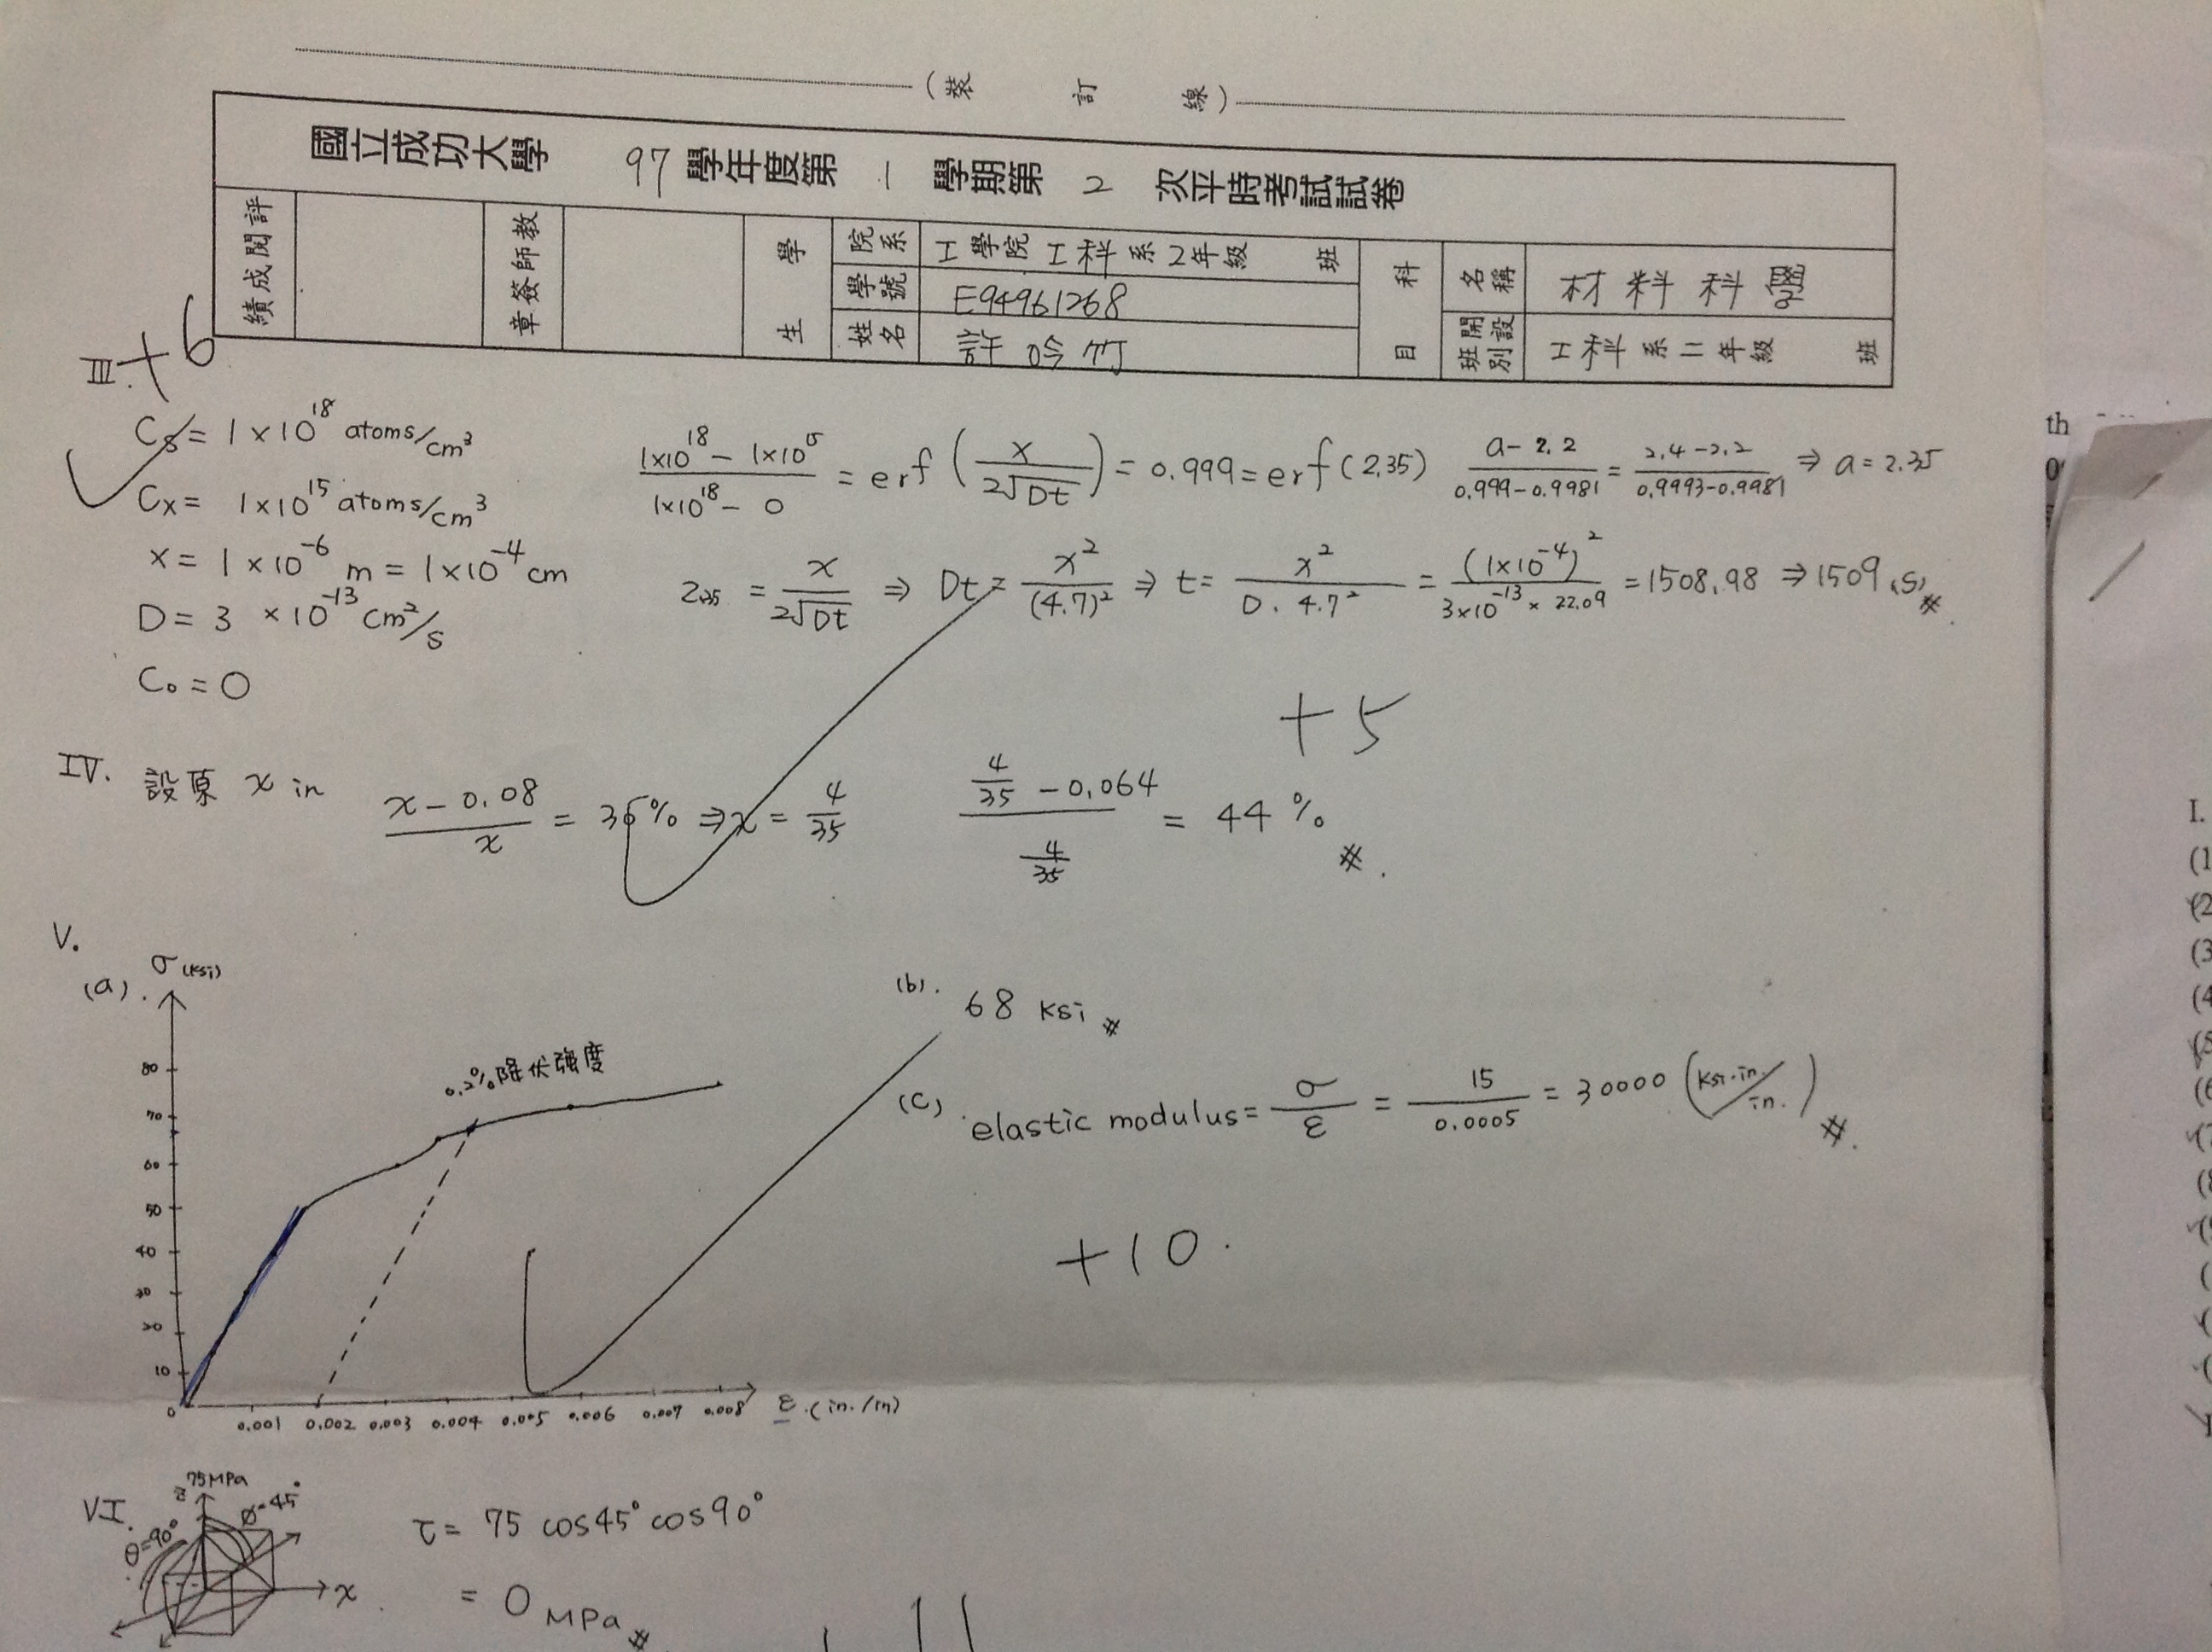 (裝 訂 線)
國立成功大學 97 學年度第 1 學期第 2 次平時考試試卷
評閱成績
教師簽章
學生
院系 工學院工科系2年級 班
學號 E94961268
姓名
科目
名稱 材料科學
開設班別 工科系二年級 班
III. +6
Cs = 1×10^18 atoms/cm³
Cx = 1×10^15 atoms/cm³
x = 1×10^-6 m = 1×10^-4 cm
D = 3×10^-13 cm²/s
C₀ = 0
(1×10^18 - 1×10^15)/(1×10^18 - 0) = erf(x/(2√Dt)) = 0.999 = erf(2.35)
(a - 2.2)/(0.999 - 0.9981) = (2.4 - 2.2)/(0.9993 - 0.9981) ⇒ a = 2.35
2.35 = x/(2√Dt) ⇒ Dt = x²/(4.7)² ⇒ t = x²/(D·4.7²) = (1×10^-4)²/(3×10^-13 × 22.09) = 1508.98 ⇒ 1509 (s) #
+5
IV. 設原 x in (x - 0.08)/x = 30% ⇒ x = 4/35
(4/35 - 0.064)/(4/35) = 44% #
V.
(a). σ (ksi)
80
70
60
50
40
30
20
10
0
0.001 0.002 0.003 0.004 0.005 0.006 0.007 0.008 ε (in./in)
0.2%降伏強度
(b). 68 ksi #
(c). elastic modulus = σ/ε = 15/0.0005 = 30000 (ksi·in./in.) #
+10.
VI.
z 75MPa
θ=90°
Ø=45°
x
τ = 75 cos45° cos90°
= 0 MPa #
th
I.
(1
(2
(3
(4
(5
(6
(7
(8